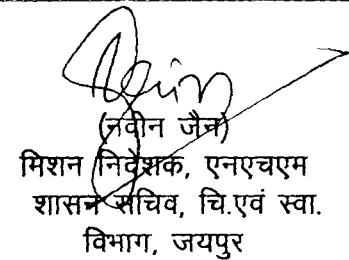 (नवीन जैन)
मिशन निदेशक, एनएचएम
शासन सचिव, चि.एवं स्वा.
विभाग, जयपुर